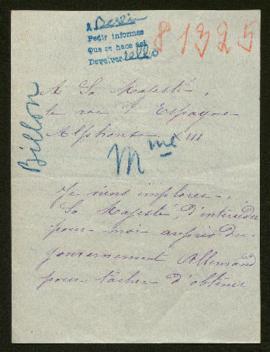 A Berlín
Pedir informes
Que se hace así
Devolver sello
81325
Billon
A Sa Majesté,
le roi d'Espagne
Alphonse XIII
Mme
Je viens implorer
Sa Majesté, d'intercéder
pour moi auprès du
gouvernement Allemand
pour tâcher d'obtenir